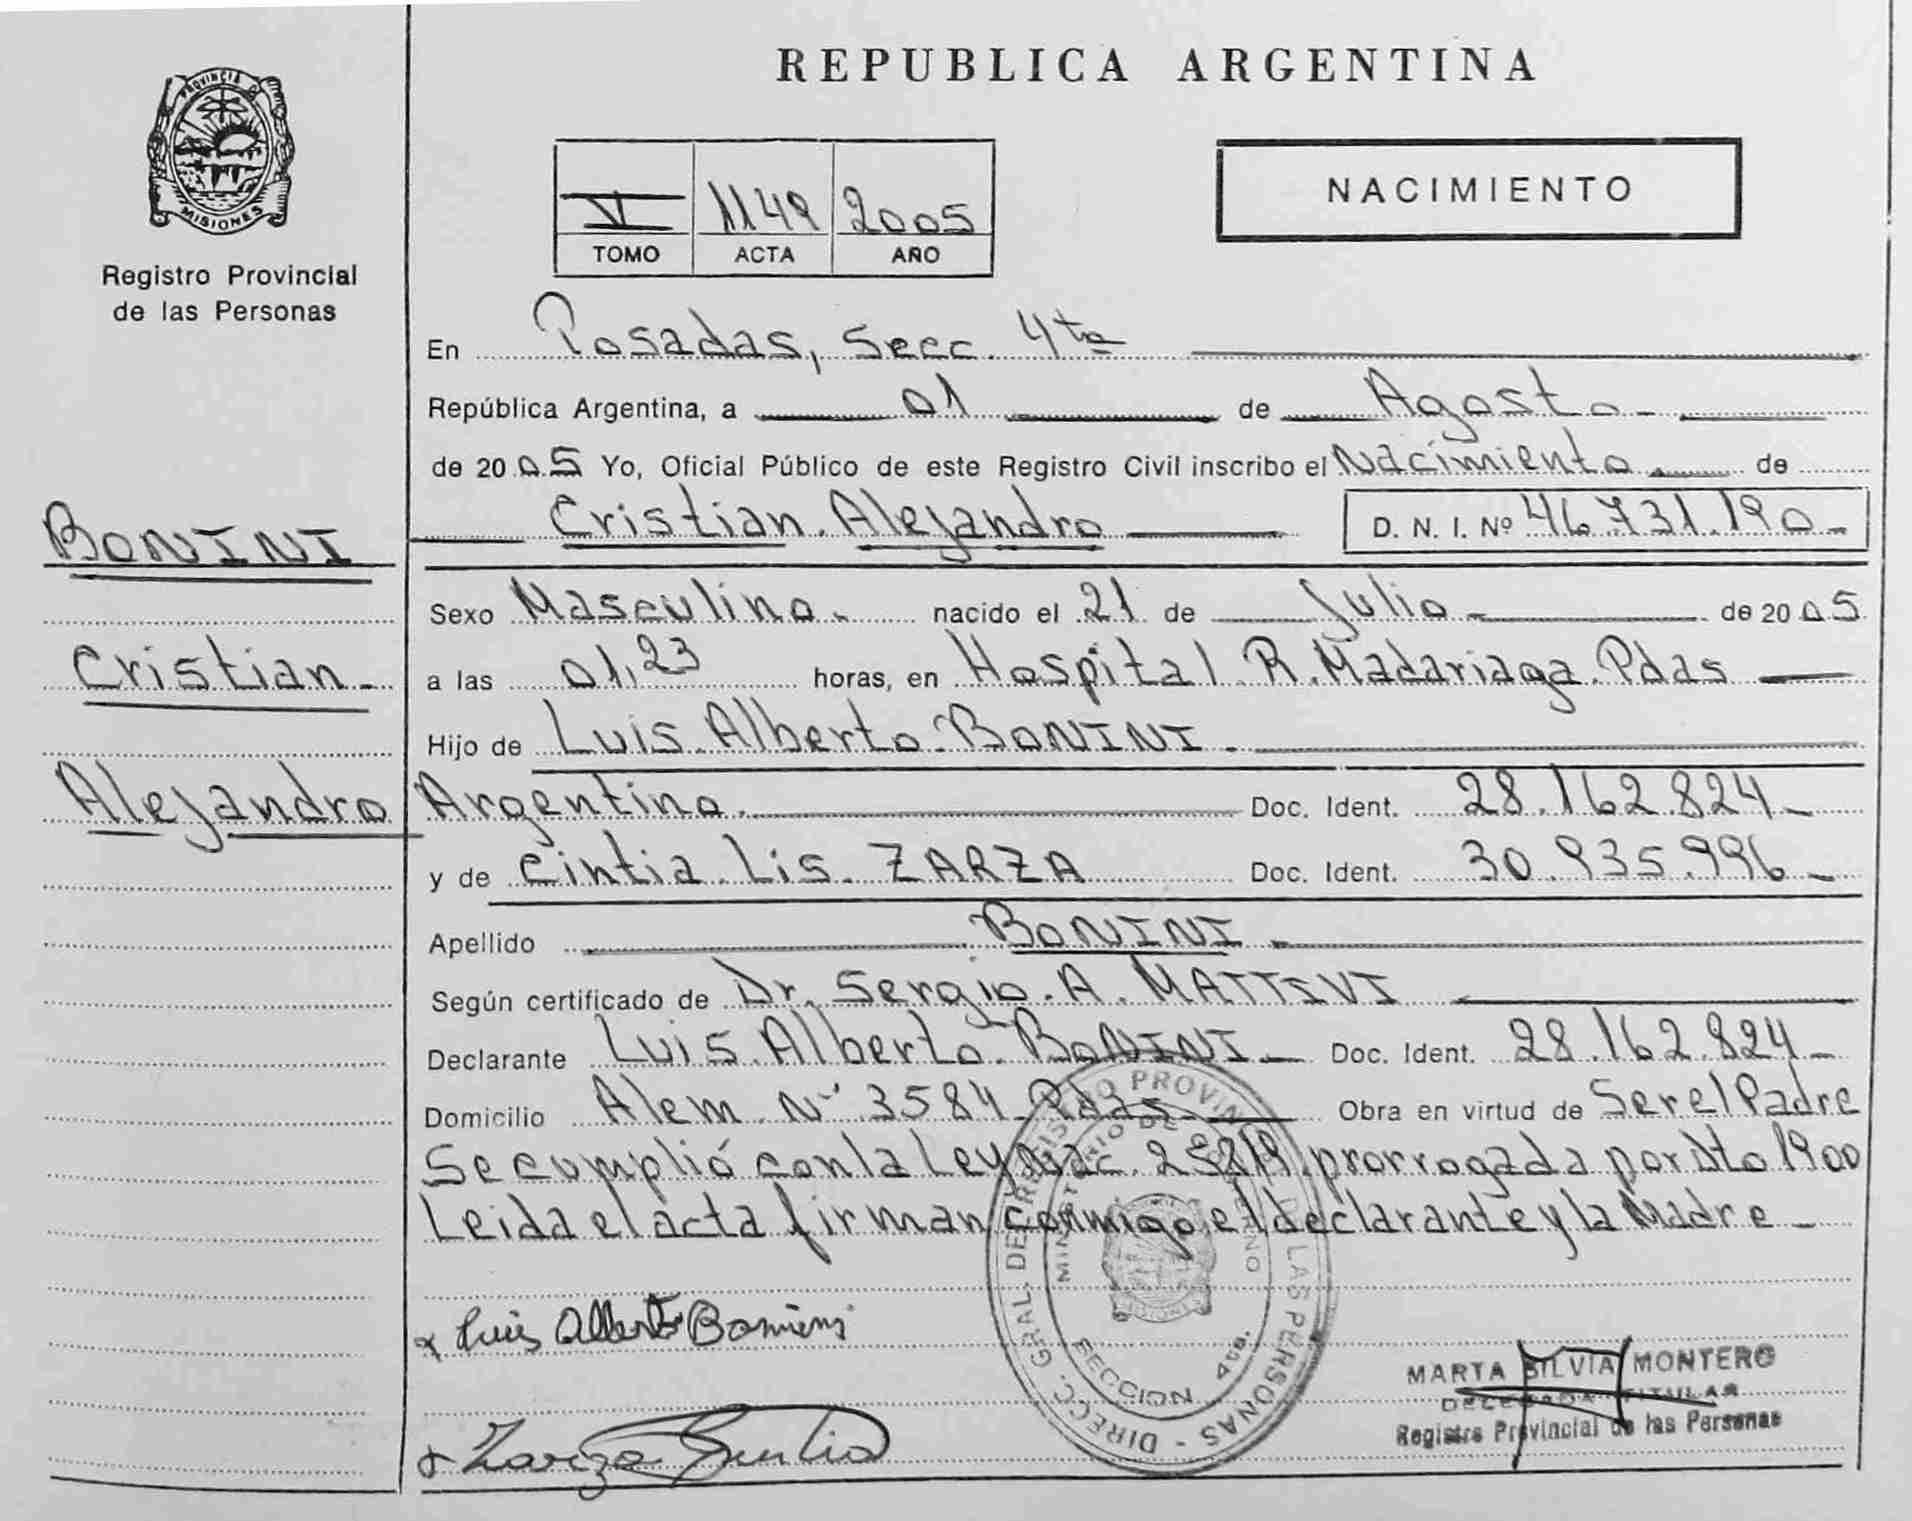 REPUBLICA ARGENTINA
PROVINCIA DE
MISIONES
Registro Provincial
de las Personas
VI 1149 2005
TOMO ACTA AÑO
NACIMIENTO
En Posadas, Secc. 4ta
República Argentina, a 01 de Agosto
de 2005 Yo, Oficial Público de este Registro Civil inscribo el Nacimiento de
Cristian Alejandro D. N. I. Nº 46.731.190
BONINI
Cristian
Alejandro
Sexo Masculino nacido el 21 de Julio de 2005
a las 01,23 horas, en Hospital R. Madariaga Pdas
Hijo de Luis Alberto BONINI
Argentino Doc. Ident. 28.162.824
y de Cintia Lis ZARZA Doc. Ident. 30.935.996
Apellido BONINI
Según certificado de Dr. Sergio A.
Declarante Luis Alberto BONINI Doc. Ident. 28.162.824
Domicilio Alem Nº 3584 Pdas Obra en virtud de Ser el Padre
Se cumplió con la Ley Nac. prorrogada por Dto 1900
Leida el acta firman conmigo el declarante y la Madre
Luis Alberto Bonini
DIRECC. GRAL. DE REGISTRO PROVINCIAL DE LAS PERSONAS
MINISTERIO DE GOBIERNO
SECCION 4ta.
MARTA SILVIA MONTERO
DELEGADA TITULAR
Registro Provincial de las Personas
Zarza Cintia